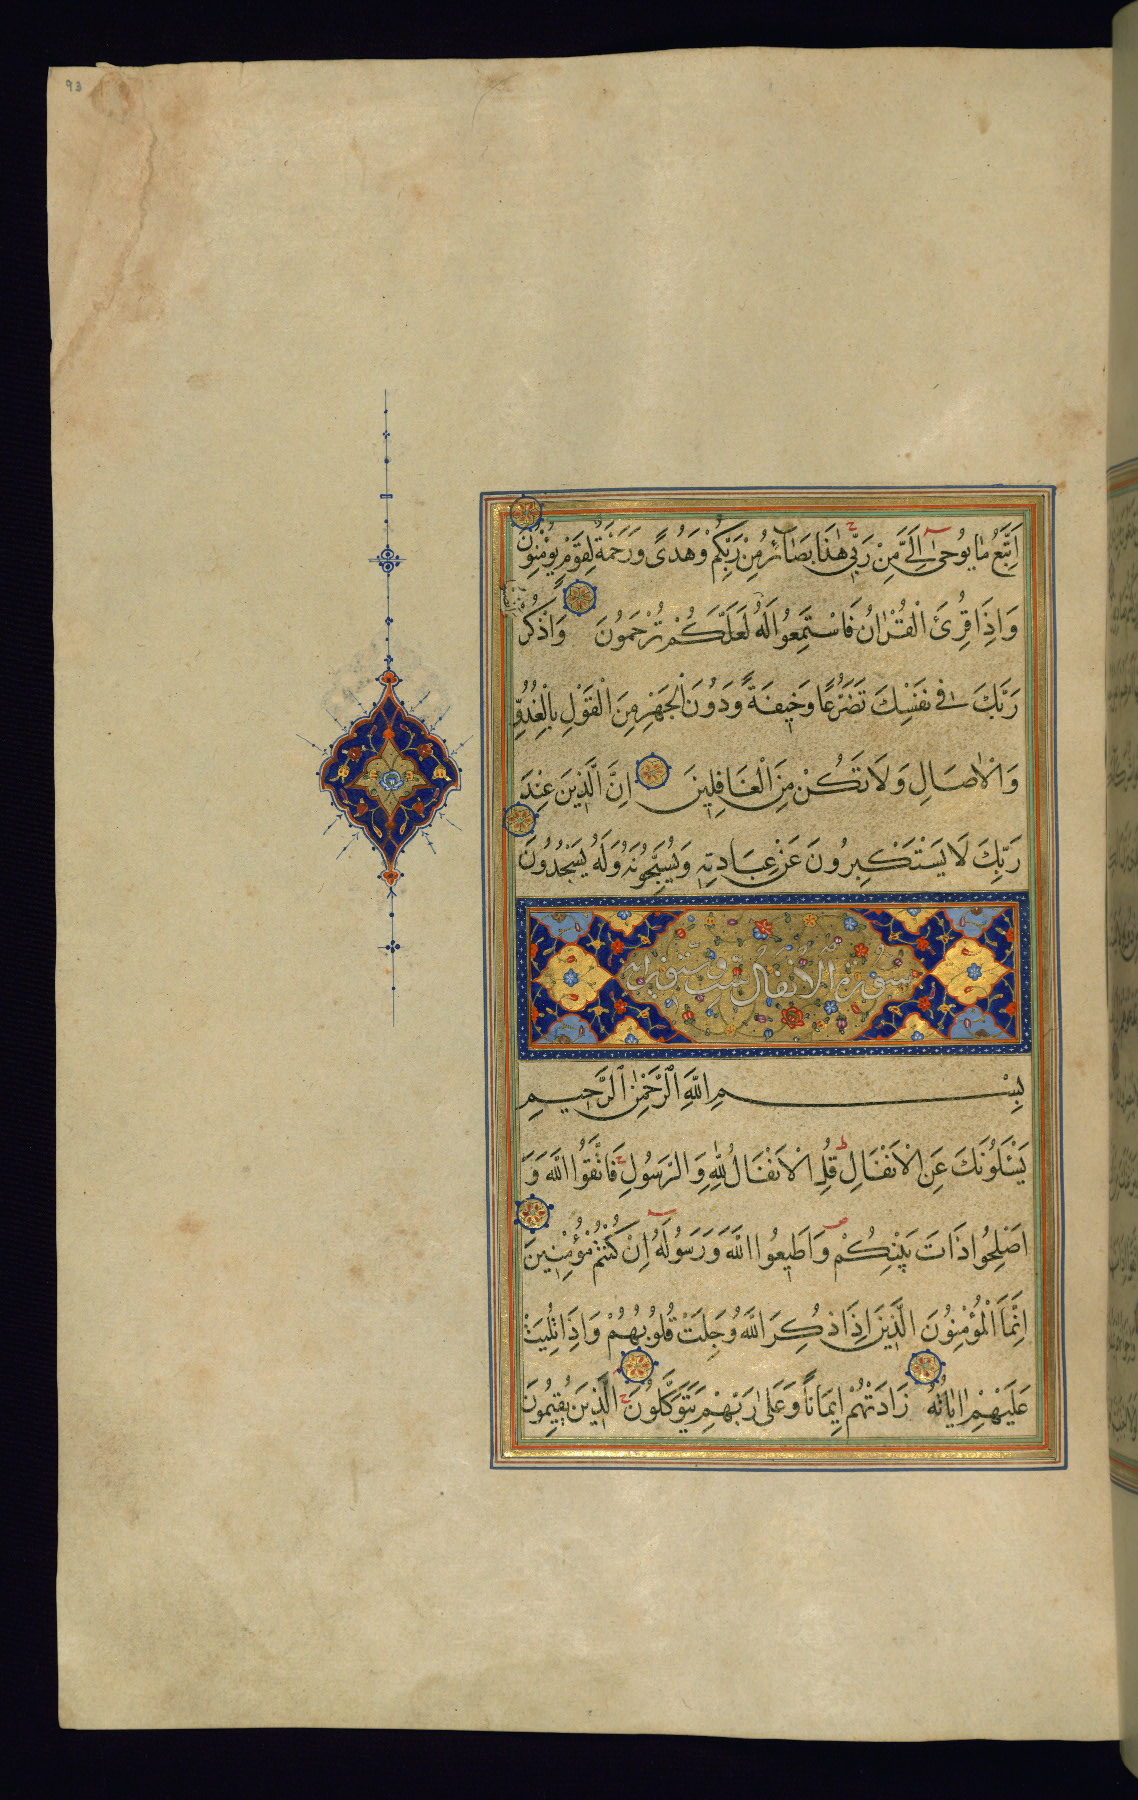 93
اَتَّبِعُ مَا يُوحٰى اِلَىَّ مِنْ رَبِّى هٰذَا بَصَائِرُ مِنْ رَبِّكُمْ وَهُدًى وَرَحْمَةٌ لِقَوْمٍ يُؤْمِنُونَ
وَاِذَا قُرِئَ الْقُرْاٰنُ فَاسْتَمِعُوا لَهُ لَعَلَّكُمْ تُرْحَمُونَ وَاذْكُرْ
رَبَّكَ فِى نَفْسِكَ تَضَرُّعًا وَخِيفَةً وَدُونَ الْجَهْرِ مِنَ الْقَوْلِ بِالْغُدُوِّ
وَالْاٰصَالِ وَلَا تَكُنْ مِنَ الْغَافِلِينَ اِنَّ الَّذِينَ عِنْدَ
رَبِّكَ لَا يَسْتَكْبِرُونَ عَنْ عِبَادَتِهِ وَيُسَبِّحُونَهُ وَلَهُ يَسْجُدُونَ
سورة الانفال ست وستون اية
بِسْمِ اللَّهِ الرَّحْمٰنِ الرَّحِيمِ
يَسْئَلُونَكَ عَنِ الْاَنْفَالِ قُلِ الْاَنْفَالُ لِلّٰهِ وَالرَّسُولِ فَاتَّقُوا اللَّهَ وَ
اَصْلِحُوا ذَاتَ بَيْنِكُمْ وَاَطِيعُوا اللَّهَ وَرَسُولَهُ اِنْ كُنْتُمْ مُؤْمِنِينَ
اِنَّمَا الْمُؤْمِنُونَ الَّذِينَ اِذَا ذُكِرَ اللَّهُ وَجِلَتْ قُلُوبُهُمْ وَاِذَا تُلِيَتْ
عَلَيْهِمْ اٰيَاتُهُ زَادَتْهُمْ اِيمَانًا وَعَلٰى رَبِّهِمْ يَتَوَكَّلُونَ الَّذِينَ يُقِيمُونَ